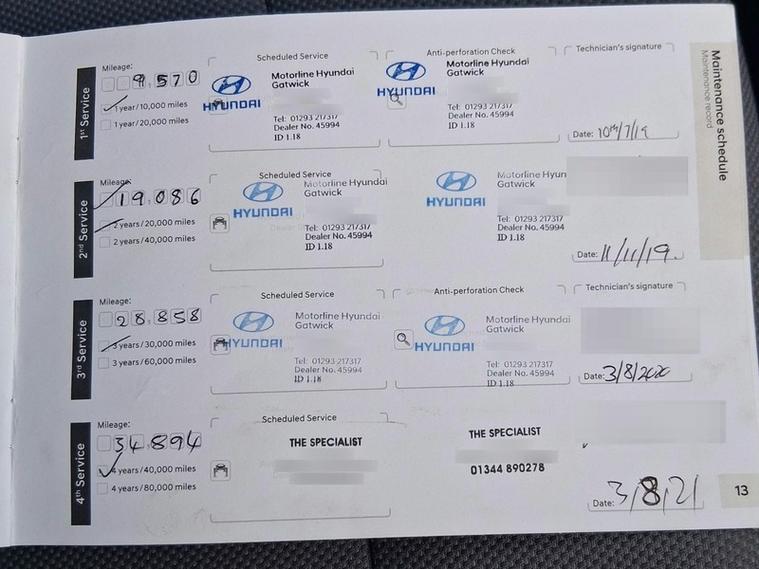 Maintenance schedule
Maintenance record
1st Service
Mileage:
9,570
1 year/10,000 miles
1 year/20,000 miles
Scheduled Service
HYUNDAI
Motorline Hyundai
Gatwick
Tel: 01293 217317
Dealer No. 45994
ID 1.18
Anti-perforation Check
HYUNDAI
Motorline Hyundai
Gatwick
Tel: 01293 217317
Dealer No. 45994
ID 1.18
Technician's signature
Date: 10th/7/19
2nd Service
Mileage:
19,086
2 years/20,000 miles
2 years/40,000 miles
Scheduled Service
HYUNDAI
Motorline Hyundai
Gatwick
Tel: 01293 217317
Dealer No. 45994
ID 1.18
HYUNDAI
Motorline Hyun
Gatwick
Tel: 01293 217317
Dealer No. 45994
ID 1.18
Date: 11/11/19.
3rd Service
Mileage:
28,858
3 years/30,000 miles
3 years/60,000 miles
Scheduled Service
HYUNDAI
Motorline Hyundai
Gatwick
Tel: 01293 217317
Dealer No. 45994
ID 1.18
Anti-perforation Check
HYUNDAI
Motorline Hyundai
Gatwick
Tel: 01293 217317
Dealer No. 45994
ID 1.18
Technician's signature
Date: 3/8/2020
4th Service
Mileage:
34,894
4 years/40,000 miles
4 years/80,000 miles
Scheduled Service
THE SPECIALIST
THE SPECIALIST
01344 890278
Date: 3/8/21
13